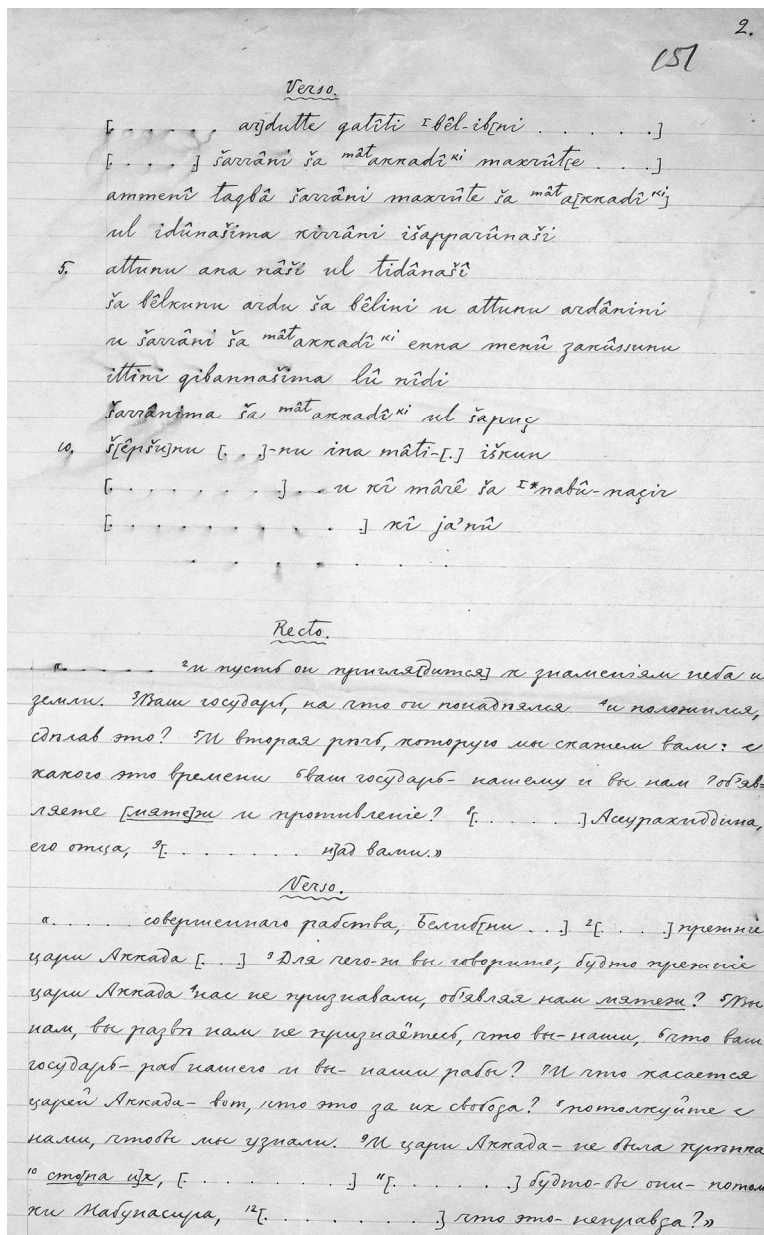 2.
151
Verso.
[. . . . . . ar]dutte gatîti ᴵbêl-ib[ni . . . . . .]
[. . . .] šarrâni ša ᵐâᵗakkadîᵏⁱ maxrût[e . . . .]
ammenî taqbâ šarrâni maxrûte ša ᵐâᵗa[kkadîᵏⁱ]
ul idûnašima kirrâni išapparûnaši
5. attunu ana nâši ul tidânašî
ša bêlkunu ardu ša bêlini u attunu ardânini
u šarrâni ša ᵐâᵗakkadîᵏⁱ enna menû zakûssunu
ittini qibannašima lû nîdi
šarrânima ša ᵐâᵗakkadîᵏⁱ ul šapuç
10. š[êpšu]nu [. .]-nu ina mâti-[.] iškun
[. . . . . . . .] . . u kî mârê ša ᴵ*nabû-naçir
[. . . . . . . . . .] kî ja’nû
. . . . . . . . .
Recto.
«. . . . . . ²и пусть он пригля[дится] к знаменіям неба и
земли. ³Ваш государь, на что он понадѣялся ⁴и положился,
сдѣлав это? ⁵И вторая рѣчь, которую мы скажем вам: с
какого это времени ⁶ваш государь- нашему и вы нам ⁷об’яв-
ляете [мяте]ж и противленіе? ⁸[. . . . . . .] Асурахиддина,
его отца, ⁹[. . . . . . . . . н]ад вами.»
Verso.
«. . . . . . совершеннаго рабства, Белиб[ни . . .] ²[. . . . .] прежніе
цари Аккада [. . .] ³Для чего-ж вы говорите, будто прежніе
цари Аккада ⁴нас не признавали, об’являя нам мятеж? ⁵Вы
нам, вы развѣ нам не признаётесь, что вы- наши, ⁶что ваш
государь- раб нашего и вы- наши рабы? ⁷И что касается
царей Аккада- вот, что это за их свобода? ⁸потолкуйте с
нами, чтобы мы узнали. ⁹И цари Аккада- не была крѣпка
¹⁰сто[па и]х, [. . . . . . . . . .] ¹¹[. . . . . . .] будто-бы они- потом
ки Набунасира, ¹²[. . . . . . . . . . .] что это- неправда?»